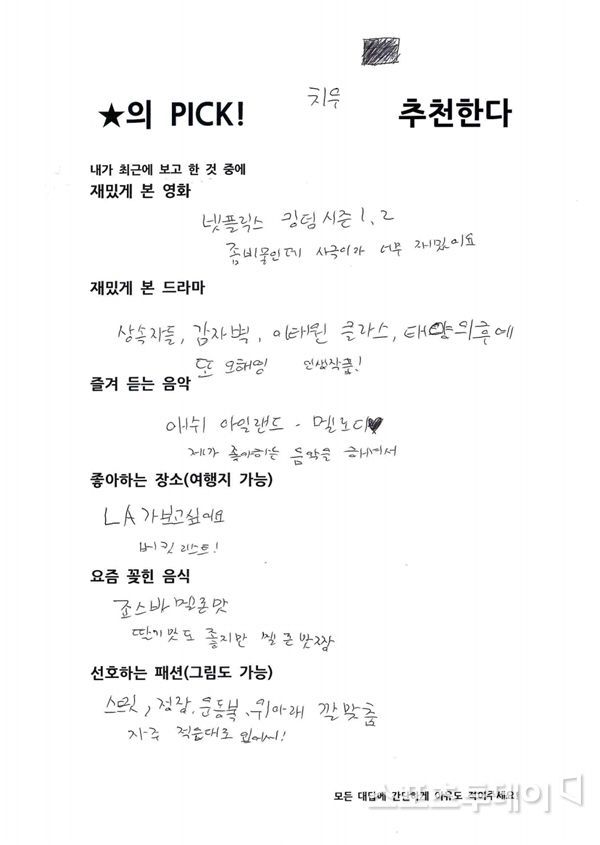 치우
★의 PICK! 추천한다
내가 최근에 보고 한 것 중에
재밌게 본 영화
넷플릭스 킹덤 시즌 1, 2
좀비물인데 사극이라 너무 재밌어요
재밌게 본 드라마
상속자들, 감자별, 이태원 클라스, 태양의후예
또 오해영 인생작품!
즐겨 듣는 음악
애쉬 아일랜드 - 멜로디♥
제가 좋아하는 음악을 하셔서
좋아하는 장소(여행지 가능)
LA 가보고싶어요
버킷 리스트!
요즘 꽂힌 음식
죠스바 멜론맛
딸기맛도 좋지만 멜론맛짱
선호하는 패션(그림도 가능)
스트릿, 정장, 운동복, 위아래 깔맞춤
자주 입어서!
모든 대답에 간단하게 이유도 적어주세요!
스포츠투데이